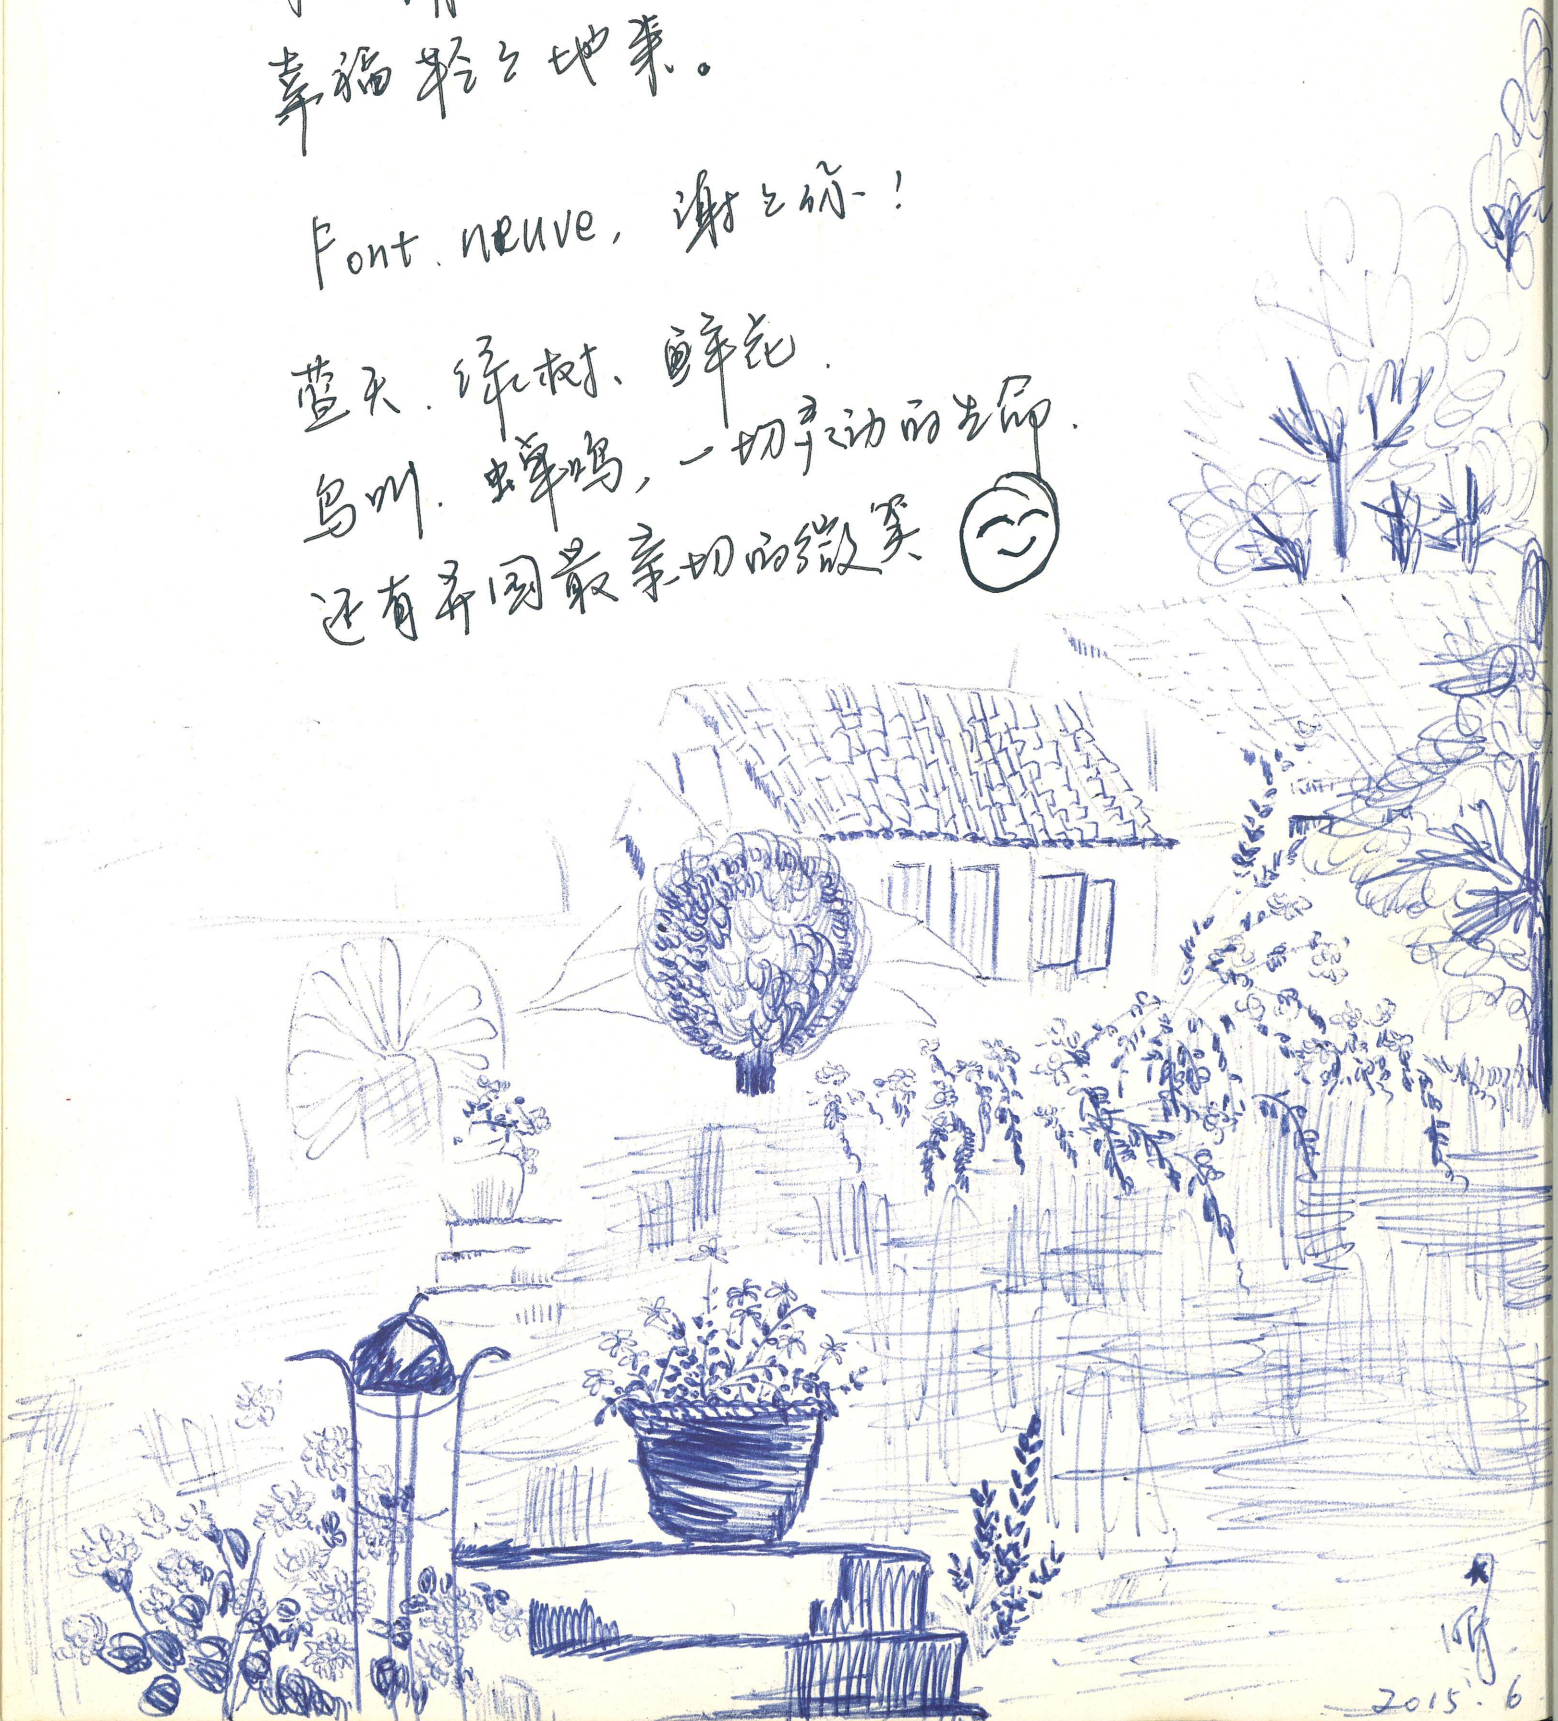 幸福轻々地来。
Font.neuve, 谢々你!
蓝天、绿树、鲜花、
鸟叫、蝉鸣,一切灵动的生命、
还有异国最亲切的微笑
2015.6